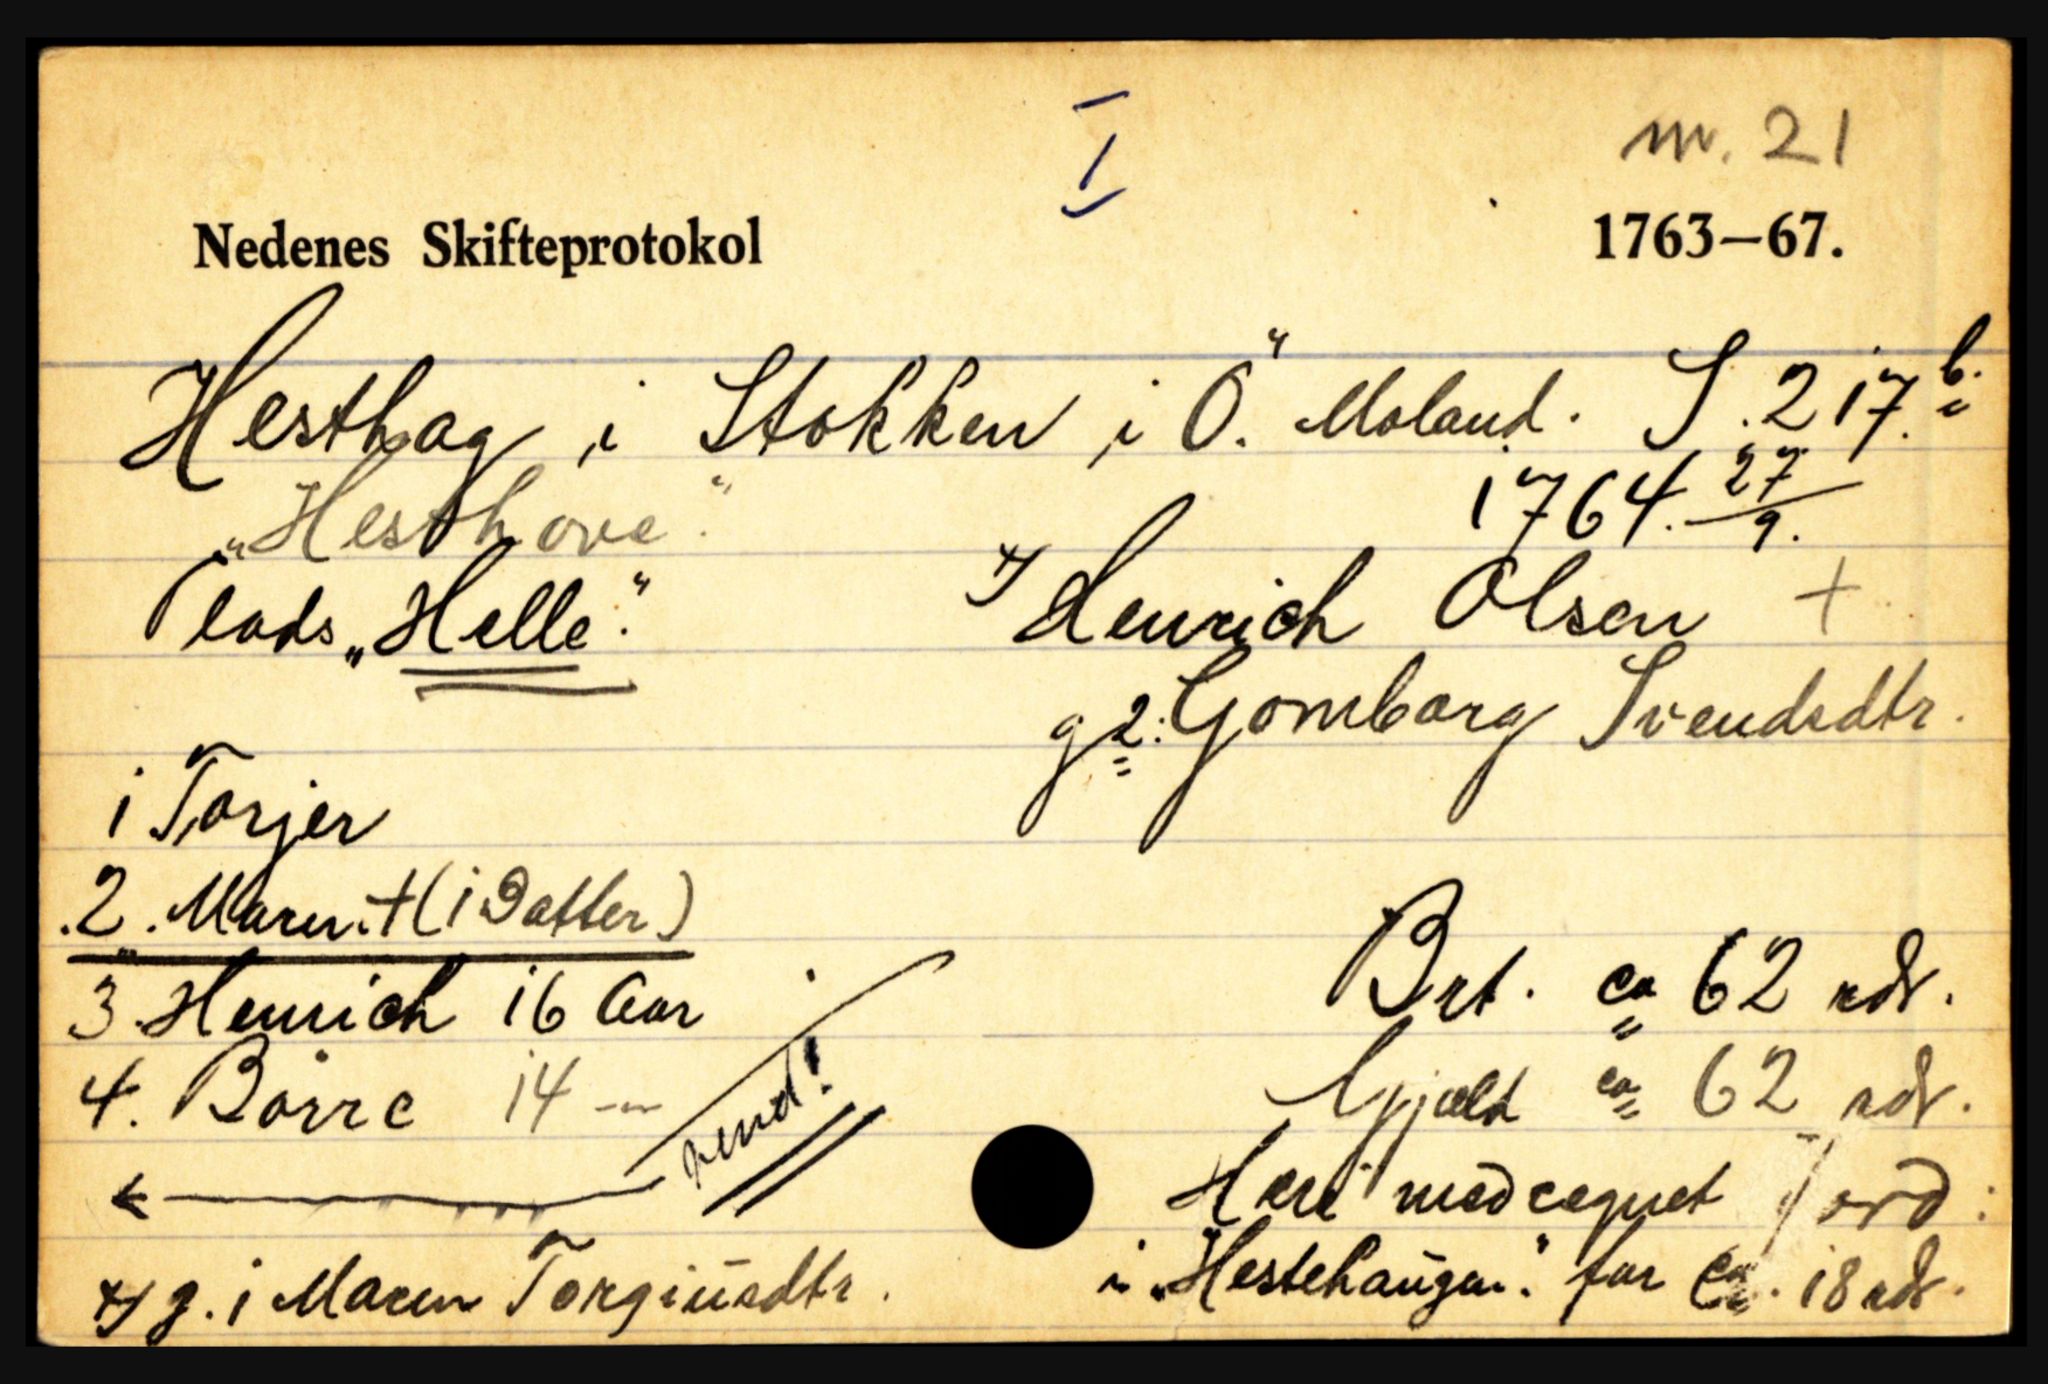 I
nr. 21
Nedenes Skifteprotokol 1763–67.
Hesthag i Stokken i Ö." Moland. S. 217.b.
"Hesthove." 1764. 27/9.
Plads „Helle."
x/ Henrich Olsen +
g 2: Gomborg Svendsdtr.
1 Torjer
2. Maren + (1 Datter)
3. Henrich 16 Aar
4. Börre 14 —
vend!
Brt. ca 62 rdr.
Gjæld ca 62 rdr.
Heri medregnet Jord:
i „Hestehaugen." for ca. 18 rdr.
x/ g. 1 Maren Torgiusdtr.